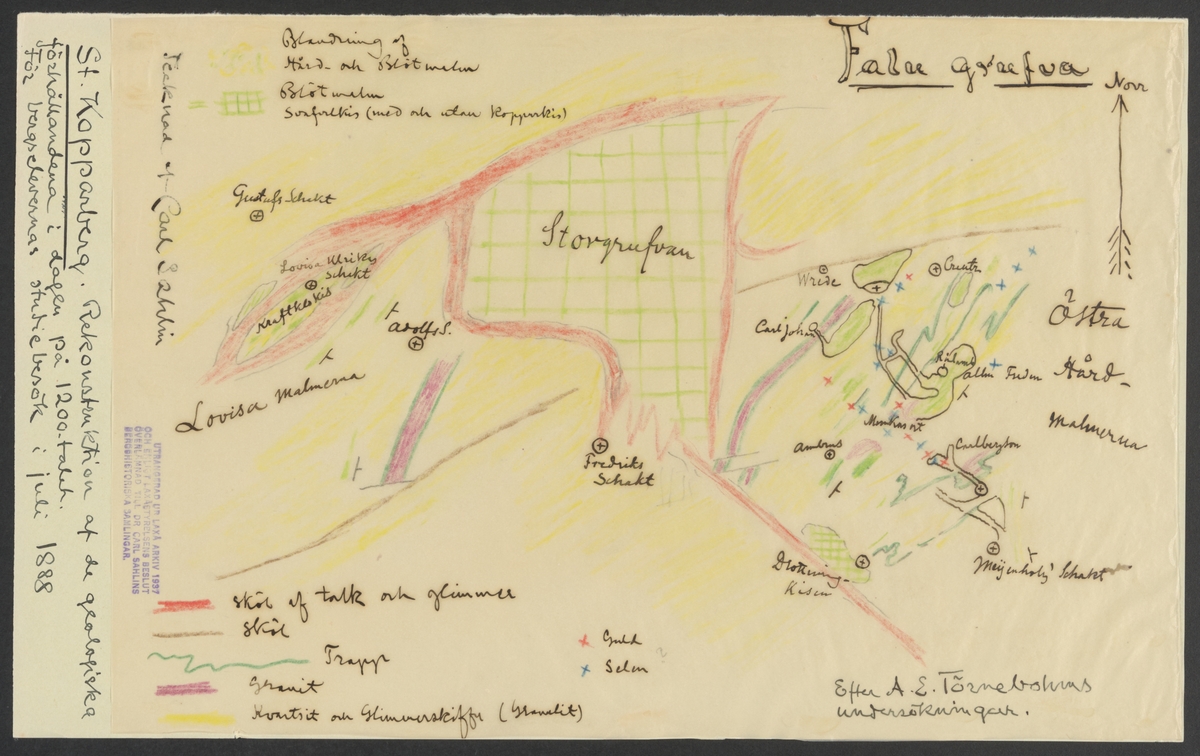 St. Kopparberg. Rekonstruktion af de geologiska
förhållandena i dagen på 1200-talet.
För bergselevernas studiebesök i juli 1888
Tecknad af Carl Sahlin
UTRANGERAD UR LAXÅ ARKIV 1937
ÖVERLÄMNAD TILL DR CARL SAHLINS
BERGSHISTORISKA SAMLINGAR.
Blandning af
Hård- och Blötmalm
Blötmalm
Svafvelkis (med och utan kopparkis)
Falu grufva
Norr
Gustafs Schakt
Storgrufvan
Lovisa Ulrikas
Schakt
Kraftklokis
Adolfs S.
Lovisa Malmerna
Wrede
Creutz
Carl Johan
Östra
Hård-
Malmerna
Fredriks
Schakt
Carlbergsort
Drottning-
Kisen
Meijenholtz Schakt
Sköl af talk och glimmer
Sköl
Trapp
Granit
Kvartsit och Glimmerskiffer (Granulit)
Guld
Selen ?
Efter A. E. Törnebohms
undersökningar.